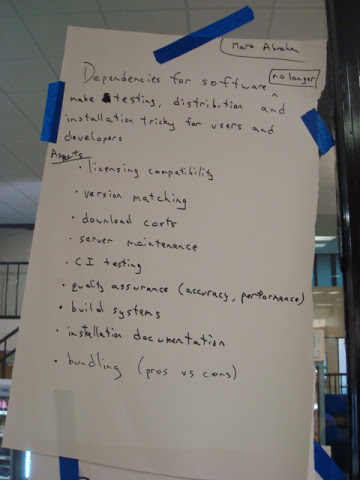 Mark Abraham
Dependencies for software ^ no longer
make testing, distribution and
installation tricky for users and
developers
Aspects
· licensing compatibility
· version matching
· download costs
· server maintenance
· CI testing
· quality assurance (accuracy, performance)
· build systems
· installation documentation
· bundling (pros vs cons)